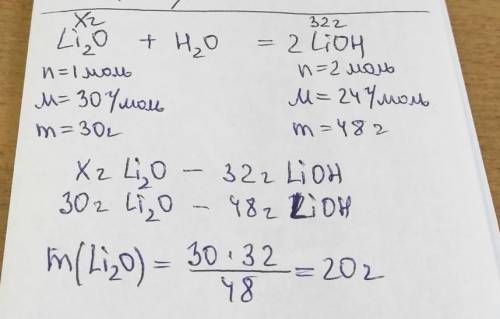 Xг 32г
Li₂O + H₂O = 2 LiOH
n=1моль n=2моль
M=30г/моль M=24г/моль
m=30г m=48г
Xг Li₂O – 32г LiOH
30г Li₂O – 48г LiOH
m(Li₂O) = 30·32 / 48 = 20г